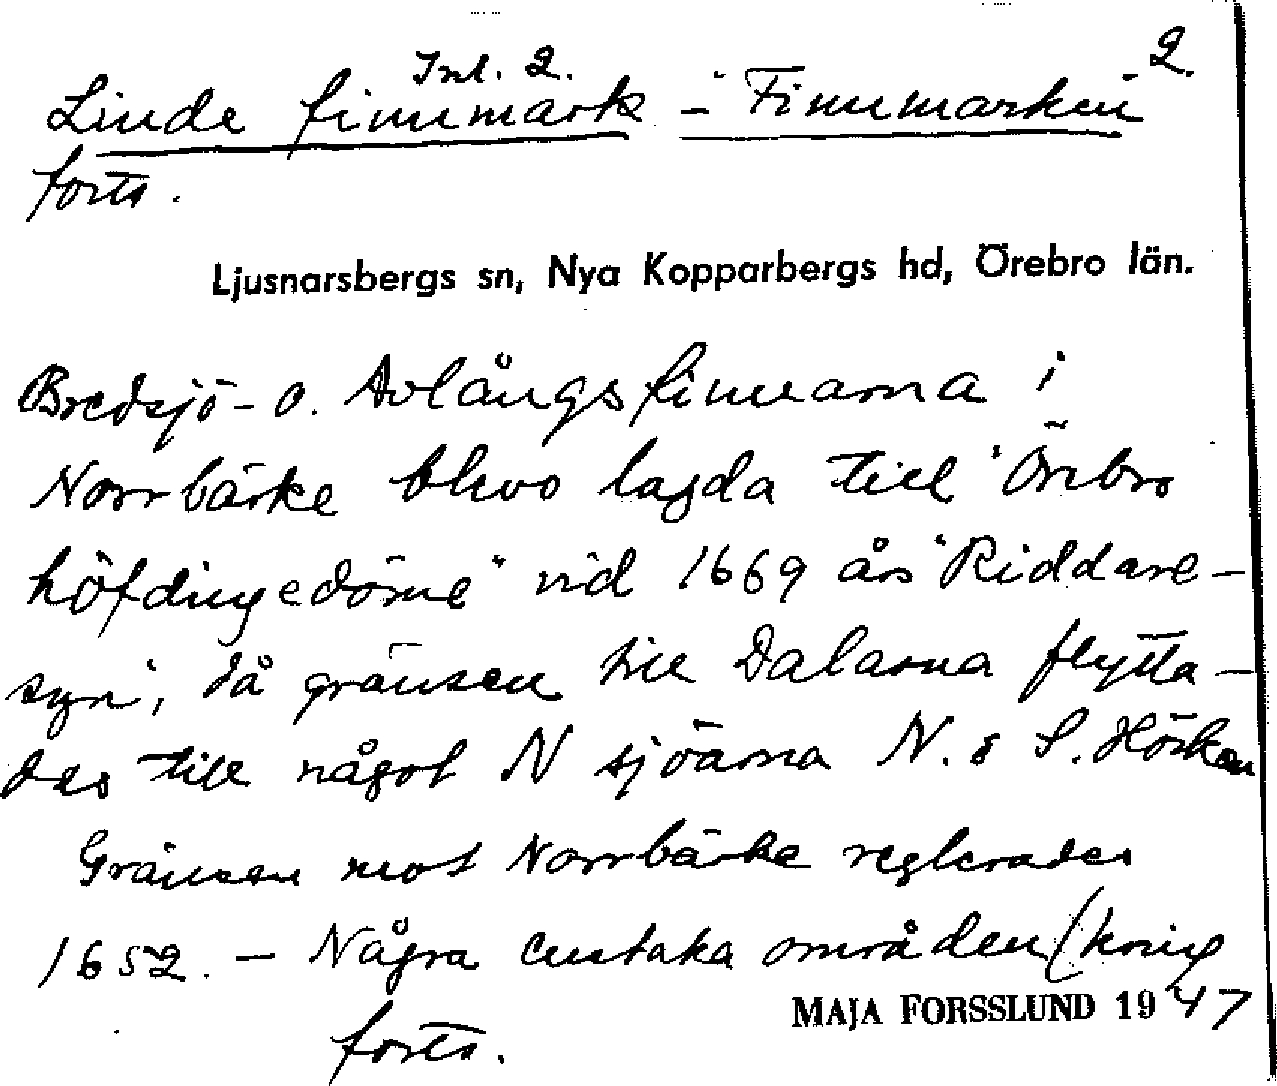 Inl. 2.
2.
Linde finnmark - "Finnmarken"
forts.
Ljusnarsbergs sn, Nya Kopparbergs hd, Örebro län.
Bredsjö- o. Avlångsfinnarna i
Norrbärke blevo lagda till "Örebro
höfdingedöme" vid 1669 års "Riddare-
syn", då gränsen till Dalarna flytta-
des till något N sjöarna N. o S. Hörken
Gränsen mot Norrbärke reglerades
1652. - Några enstaka områden (kring
forts.
MAJA FORSSLUND 1947